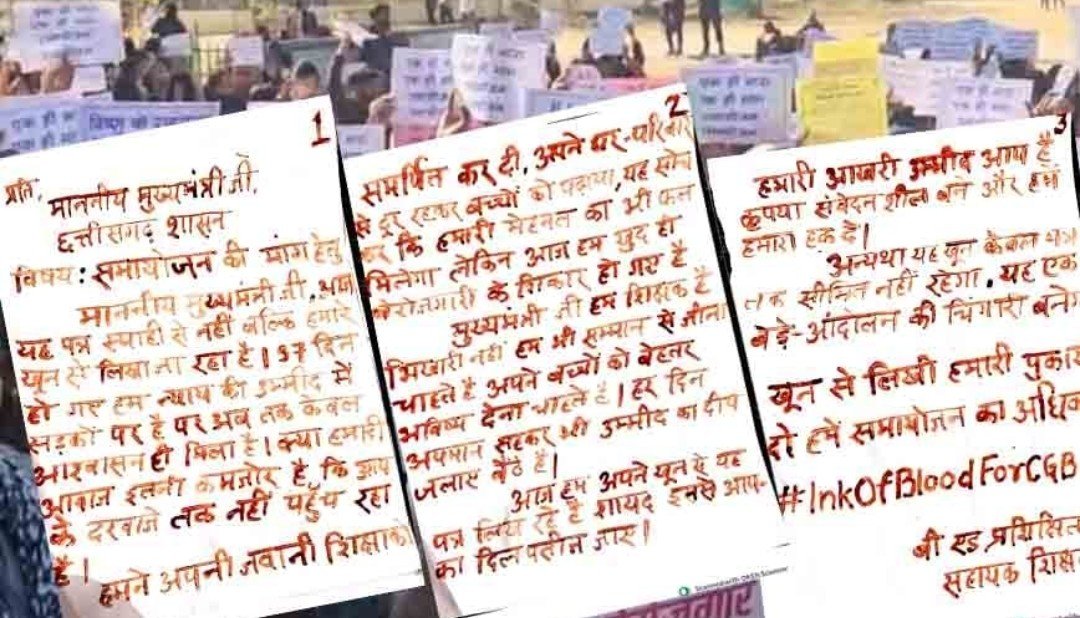 1
प्रति,
माननीय मुख्यमंत्री जी,
छत्तीसगढ़ शासन
विषय: समायोजन की मांग हेतु
माननीय मुख्यमंत्री जी, आज
यह पत्र स्याही से नहीं बल्कि हमारे
खून से लिखा जा रहा है। 57 दिन
हो गए हम न्याय की उम्मीद में
सड़कों पर है पर अब तक केवल
आश्वासन ही मिला है। क्या हमारी
आवाज इतनी कमजोर है, कि आप
के दरवाजे तक नहीं पहुँच रहा
है।
हमने अपनी जवानी शिक्षा को
2
समर्पित कर दी, अपने घर-परिवार
से दूर रहकर बच्चों को पढ़ाया, यह सोच
कर कि हमारी मेहनत का भी फल
मिलेगा लेकिन आज हम खुद ही
बेरोजगारी के शिकार हो गए है
मुख्यमंत्री जी हम शिक्षक है
भिखारी नहीं हम भी सम्मान से जीना
चाहते है अपने बच्चों को बेहतर
भविष्य देना चाहते है। हर दिन
अपमान सहकर भी उम्मीद का दीप
जलाए बैठे है।
आज हम अपने खून से यह
पत्र लिख रहे है शायद इनसे आप-
का दिल पसीज जाए।
Scanned with OKEN Scanner
3
हमारी आखरी उम्मीद आप है
कृपया संवेदनशील बने और हमें
हमारा हक दें।
अन्यथा यह खून केवल पत्र
तक सीमित नहीं रहेगा, यह एक
बड़े-आंदोलन की चिंगारी बनेग
खून से लिखी हमारी पुकार
दो हमें समायोजन का अधिक
#InkOfBloodForCGB
बी एड प्रशिक्षित
सहायक शिक्ष